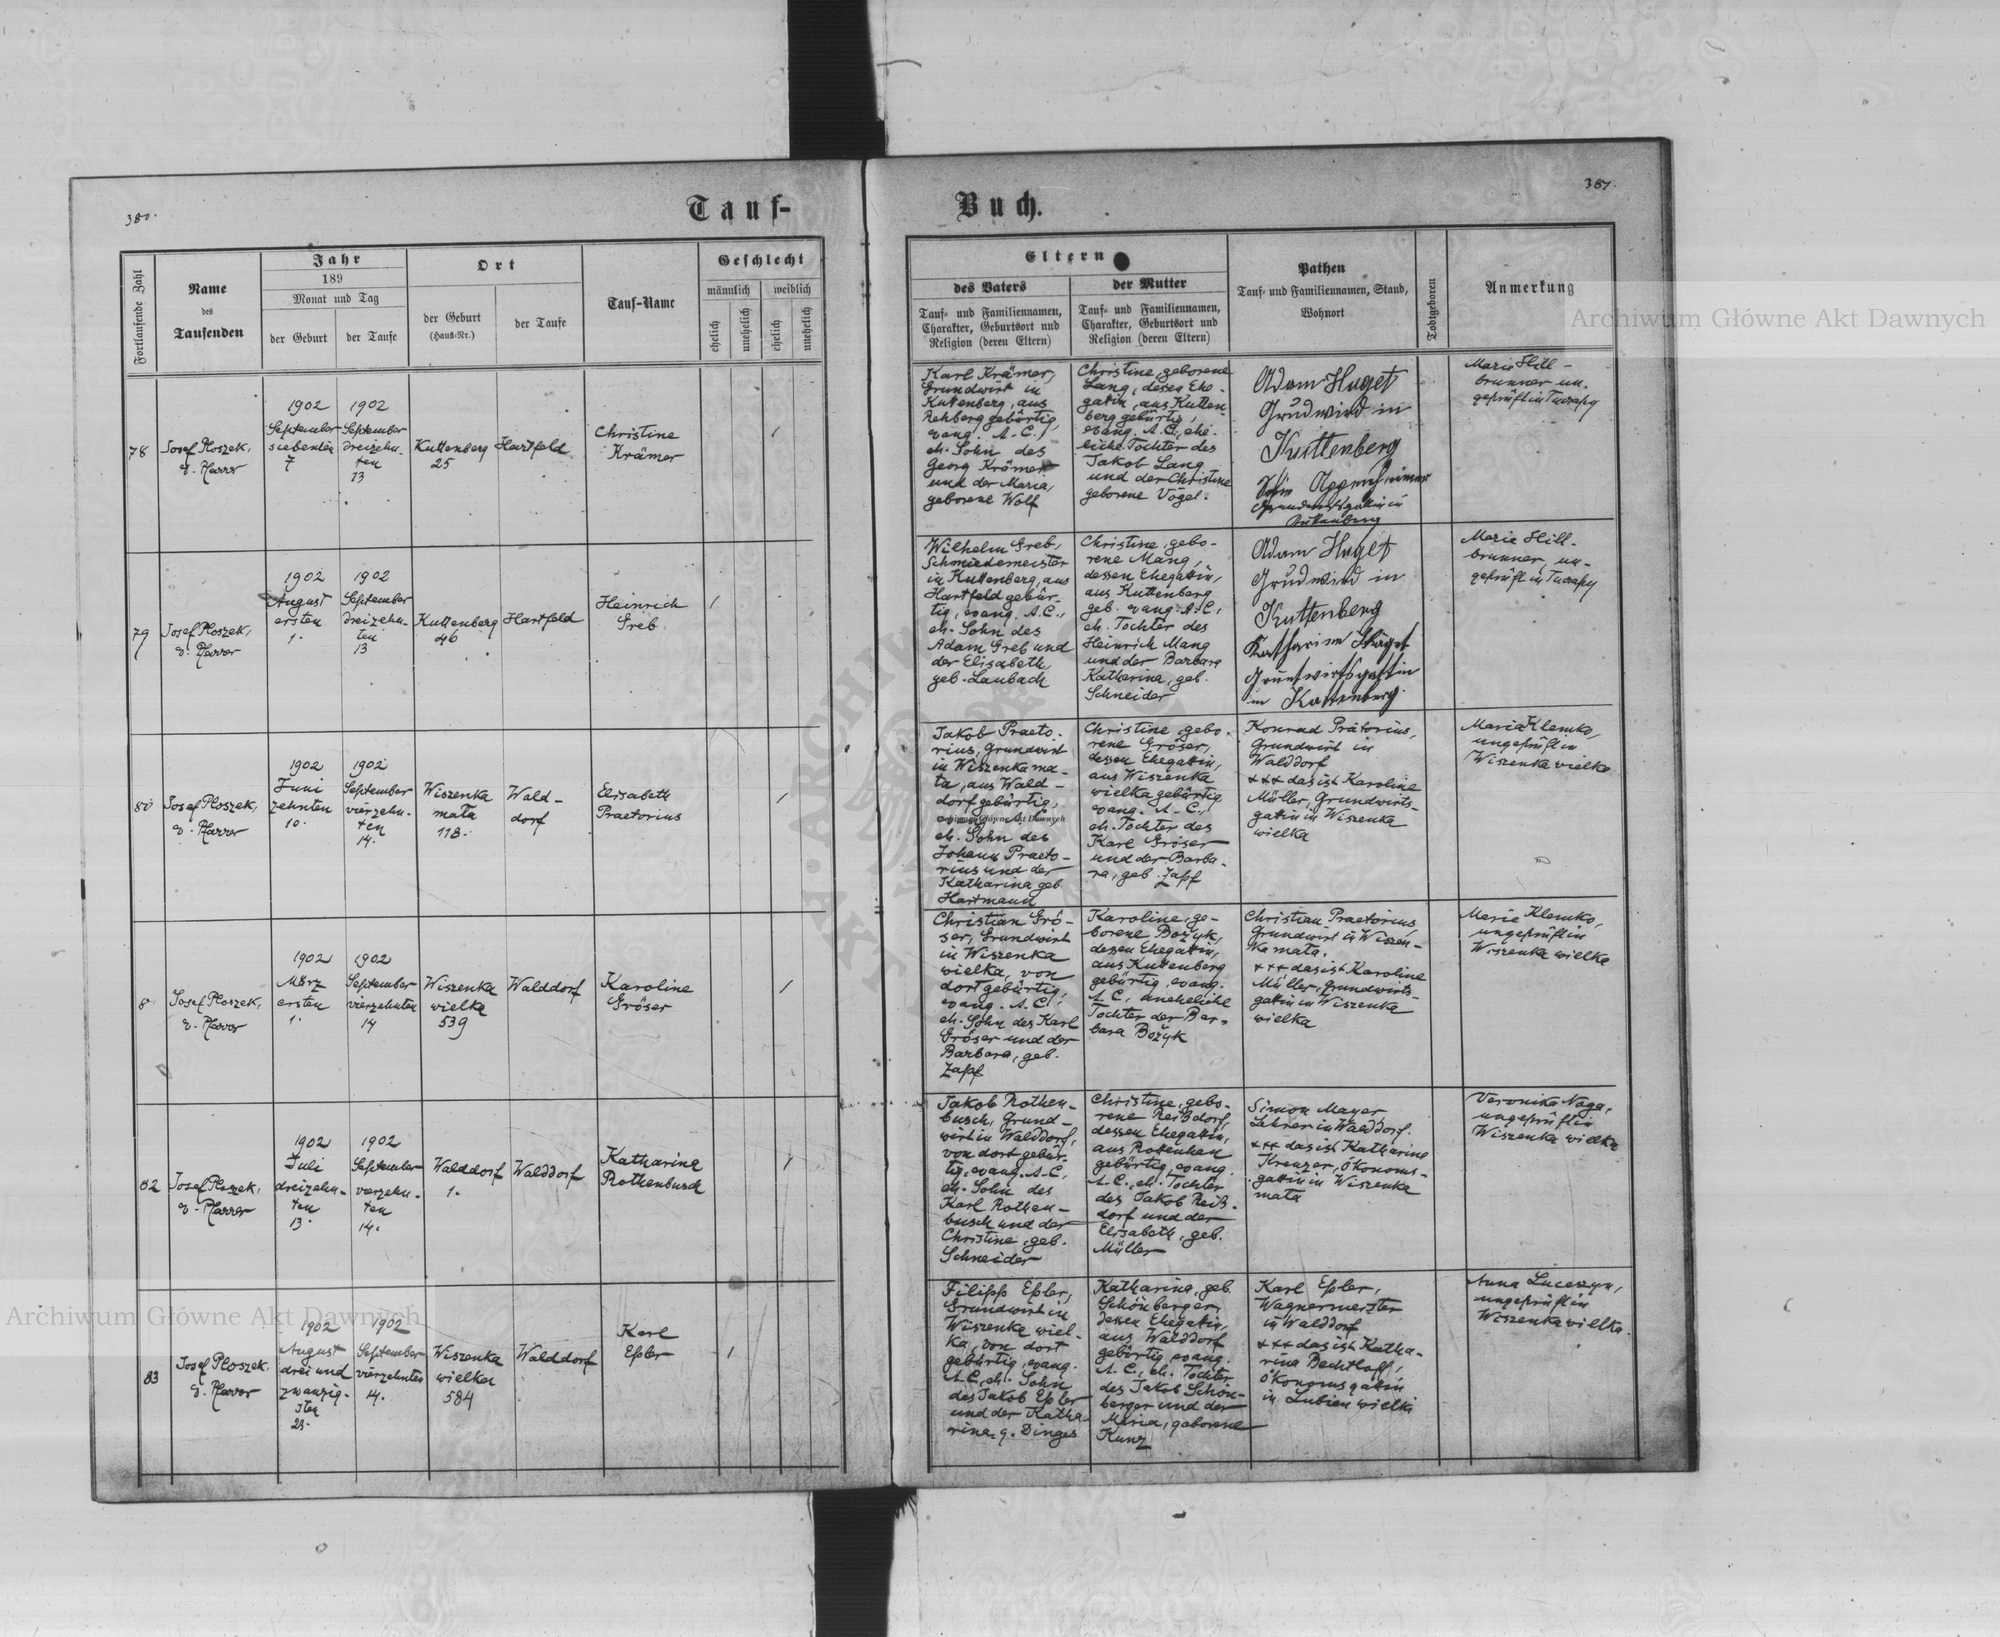 380.
Tauf-
Buch.
381.
Fortlaufende Zahl
Name
des
Taufenden
Jahr
189
Monat und Tag
der Geburt
der Taufe
Ort
der Geburt
(Haus-Nr.)
der Taufe
Tauf-Name
Geschlecht
männlich
weiblich
ehelich
unehelich
ehelich
unehelich
Eltern
des Vaters
Tauf- und Familiennamen,
Charakter, Geburtsort und
Religion (deren Eltern)
der Mutter
Tauf- und Familiennamen,
Charakter, Geburtsort und
Religion (deren Eltern)
Pathen
Tauf- und Familiennamen, Stand,
Wohnort
Todtgeboren
Anmerkung
78
Josef Ploszek,
ev. Pfarrer
1902
September
siebenten
7
1902
September
dreizehn-
ten
13
Kuttenberg
25
Hartfeld
Christine
Krämer
1
Karl Krämer,
Grundwirt in
Kuttenberg, aus
Rehberg gebürtig,
evang. A.C.,
eh. Sohn des
Georg Krämer
und der Maria,
geborene Wolf
Christine, geborene
Lang, dessen Ehe-
gatin, aus Kutten-
berg gebürtig,
evang. A.C., ehe-
liche Tochter des
Jakob Lang
und der Christine
geborene Vogel.
Adam Huget
Grudwird in
Kuttenberg
Marie Hill-
brunner un-
geprüft in
79
Josef Ploszek,
ev. Pfarrer
1902
August
ersten
1.
1902
September
dreizehn-
ten
13
Kuttenberg
46
Hartfeld
Heinrich
Greb
1
Wilhelm Greb,
Schmiedemeister
in Kuttenberg, aus
Hartfeld gebür-
tig, evang. A.C.,
eh. Sohn des
Adam Greb und
der Elisabeth,
geb. Laubach
Christine, gebo-
rene Mang,
dessen Ehegattin,
aus Kuttenberg
geb. evang. A.C.,
eh. Tochter des
Heinrich Mang
und der Barbara
Katharina, geb.
Schneider
Adam Huget
Grudwird in
Kuttenberg
in Kuttenberg.
Marie Hill-
brunner, un-
geprüft in
80
Josef Ploszek,
ev. Pfarrer
1902
Juni
zehnten
10.
1902
September
vierzehn-
ten
14.
Wiszenka
mała
118.
Wald-
dorf
Elisabeth
Praetorius
1
Jakob Praeto-
rius, Grundwirt
in Wiszenka ma-
ła, aus Wald-
dorf gebürtig,
eh. Sohn des
Johann Praeto-
rius und der
Katharina geb.
Hartmann
Christine, gebo-
rene Gröser,
dessen Ehegattin,
aus Wiszenka
wielka gebürtig
evang. A.C.,
eh. Tochter des
Karl Gröser
und der Barba-
ra, geb. Zapf
Konrad Prätorius,
Grundwirt in
Walddorf
+++ das ist Karoline
Müller, Grundwirts-
gatin in Wiszenka
wielka
Maria Klemko,
ungeprüft in
Wiszenka wielka
8
Josef Ploszek,
ev. Pfarrer
1902
März
ersten
1.
1902
September
vierzehnten
14
Wiszenka
wielka
539
Walddorf
Karoline
Gröser
1
Christian Grö-
ser, Grundwirt
in Wiszenka
wielka, von
dort gebürtig,
evang. A.C.,
eh. Sohn des Karl
Gröser und der
Barbara, geb.
Zapf
Karoline, ge-
borene Bożyk,
dessen Ehegattin,
aus Kuttenberg
gebürtig, evang.
A.C., uneheliche
Tochter der Bar-
bara Bożyk
Christian Praetorius,
Grundwirt in Wiszen-
ka mała.
+++ das ist Karoline
Müller, Grundwirts-
gatin in Wiszenka
wielka
Marie Klemko,
ungeprüft in
Wiszenka wielka
82
Josef Ploszek,
ev. Pfarrer
1902
Juli
dreizehn-
ten
13.
1902
September
vierzehn-
ten
14.
Walddorf
1.
Walddorf
Katharina
Rothenbusch
1
Jakob Rothen-
busch, Grund-
wirt in Walddorf,
von dort gebür-
tig, evang. A.C.,
eh. Sohn des
Karl Rothen-
busch und der
Christine, geb.
Schneider
Christine, gebo-
rene Reißdorf,
dessen Ehegattin,
aus Rottenhan
gebürtig, evang.
A.C., eh. Tochter
des Jakob Reiß-
dorf und der
Elisabeth, geb.
Müller
Simon Mayer
Lehrer in Walddorf.
+++ das ist Katharina
Kreuzer, Ökonoms-
gatin in Wiszenka
mała
Veronika Naga,
ungeprüft in
Wiszenka wielka
83
Josef Ploszek,
ev. Pfarrer
1902
August
drei und
zwanzig-
sten
23.
1902
September
vierzehnten
14.
Wiszenka
wielka
584
Walddorf
Karl
Eßler
1
Filipp Eßler,
Grundwirt in
Wiszenka wiel-
ka, von dort
gebürtig, evang.
A.C., eh. Sohn
des Jakob Eßler
und der Katha-
rina, g. Dinges
Katharina, geb.
Schönberger,
dessen Ehegattin,
aus Walddorf
gebürtig, evang.
A.C., eh. Tochter
des Jakob Schön-
berger und der
Maria, geborene
Kunz
Karl Eßler,
Wagnermeister
in Walddorf
+++ das ist Katha-
rina Bechtloff,
Ökonomsgatin
in Lubien wielki
Anna Luceszyn,
ungeprüft in
Wiszenka wielka.
Archiwum Główne Akt Dawnych
Archiwum Główne Akt Dawnych
Archiwum Główne Akt Dawnych